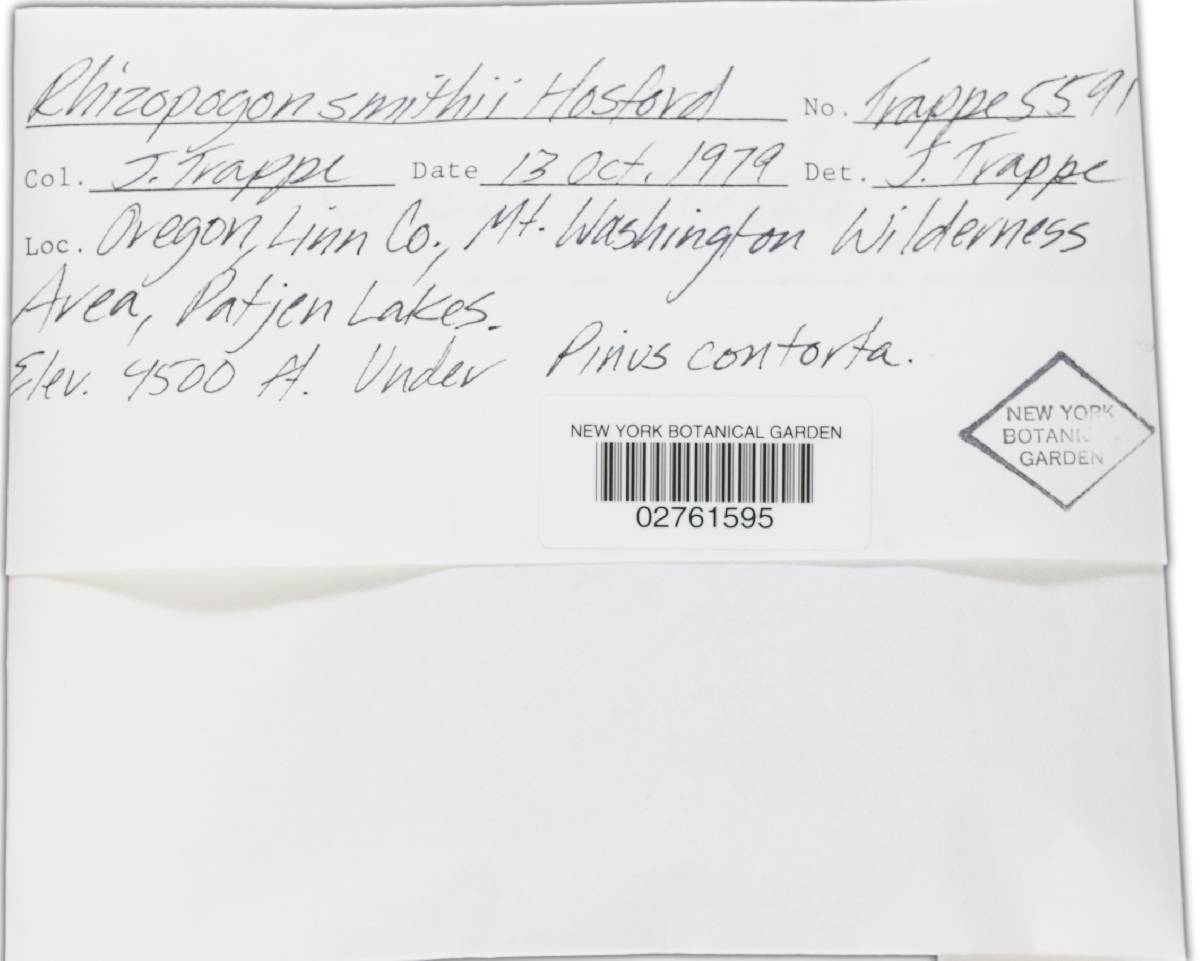 Rhizopogon smithii Hosford No. Trappe 5591
Col. J. Trappe Date 13 Oct. 1979 Det. J. Trappe
Loc. Oregon, Linn Co., Mt. Washington Wilderness
Area, Patjen Lakes.
Elev. 4500 ft. Under Pinus contorta.
NEW YORK
BOTANICAL
GARDEN
NEW YORK BOTANICAL GARDEN
02761595